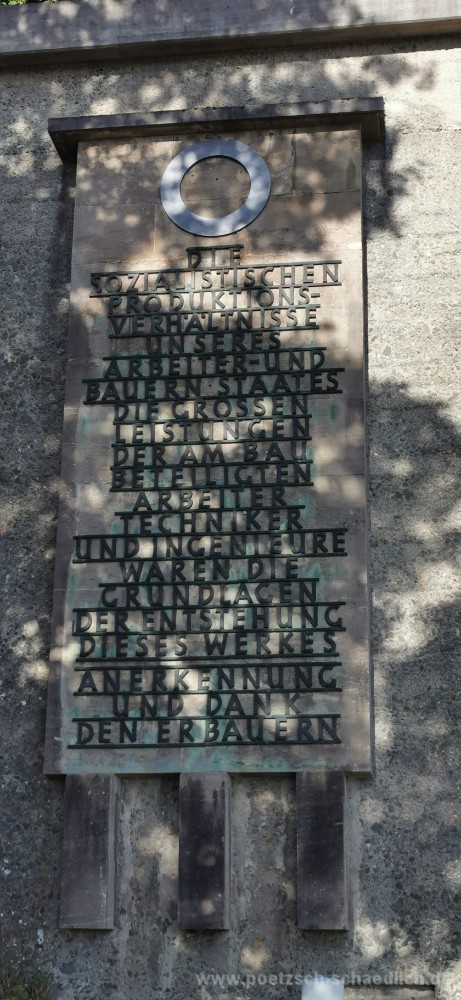 DIE
SOZIALISTISCHEN
PRODUKTIONS-
VERHÄLTNISSE
UNSERES
ARBEITER-UND
BAUERN STAATES
DIE GROSSEN
LEISTUNGEN
DER AM BAU
BETEILIGTEN
ARBEITER
TECHNIKER
UND INGENIEURE
WAREN DIE
GRUNDLAGEN
DER ENTSTEHUNG
DIESES WERKES
ANERKENNUNG
UND DANK
DEN ERBAUERN
www.poetzsch-schaedlich.de